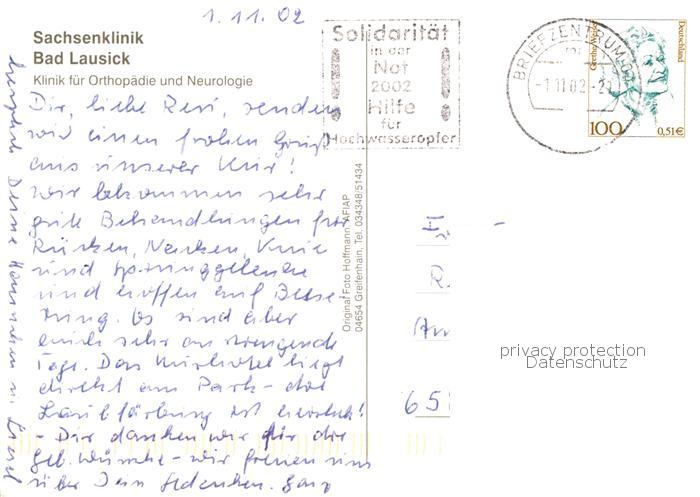 1.11.02
Sachsenklinik
Bad Lausick
Klinik für Orthopädie und Neurologie
Solidarität
in der
Not
2002
Hilfe
für
Hochwasseropfer
BRIEFZENTRUM
-1.11.02-
Grethe Weiser
Deutschland
100
0,51€
Dir, liebe Resi, senden
wir einen frohen Gruß
aus unserer Kur!
Wir bekommen sehr
gute Behandlungen für
Rücken, Nacken, Knie
und Sprunggelenke
und hoffen auf Besse-
rung. Es sind aber
auch sehr anstrengende
Tage. Das Kurhotel liegt
direkt am Park - die
Laubfärbung ist herrlich!
- Dir danken wir für die
Geb. wünsche - wir freuen uns
über Dein Gedenken. Ganz
herzlich Deine
Original Foto Hoffmann AFIAP
04654 Greifenhain, Tel. 034348/51434
R.
65
privacy protection
Datenschutz